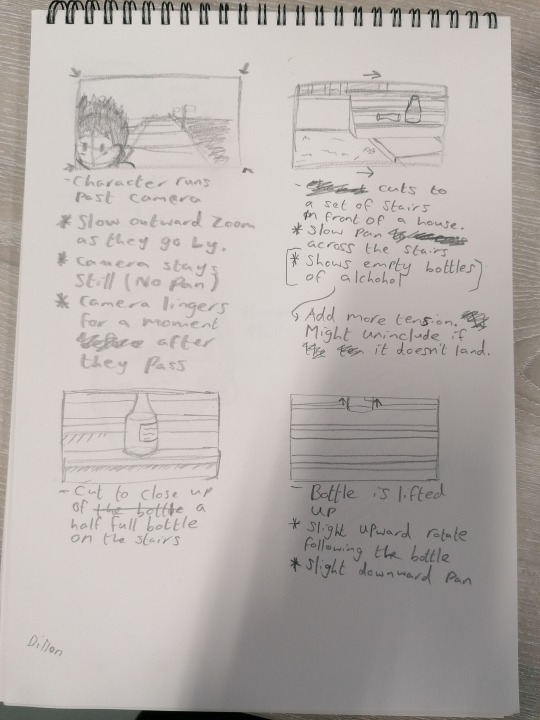 - Character runs
past camera
* Slow outward zoom
as they go by.
* Camera stays
still (No Pan)
* Camera lingers
for a moment
after
they pass
- cuts to
a set of stairs
in front of a house.
* Slow pan
across the stairs
* Shows empty bottles
of alchohol
Add more tension.
Might uninclude if
it doesn't land.
- Cut to close up
of the bottle a
half full bottle
on the stairs
- Bottle is lifted
up
* Slight upward rotate
following the bottle
* Slight downward pan
Dillon